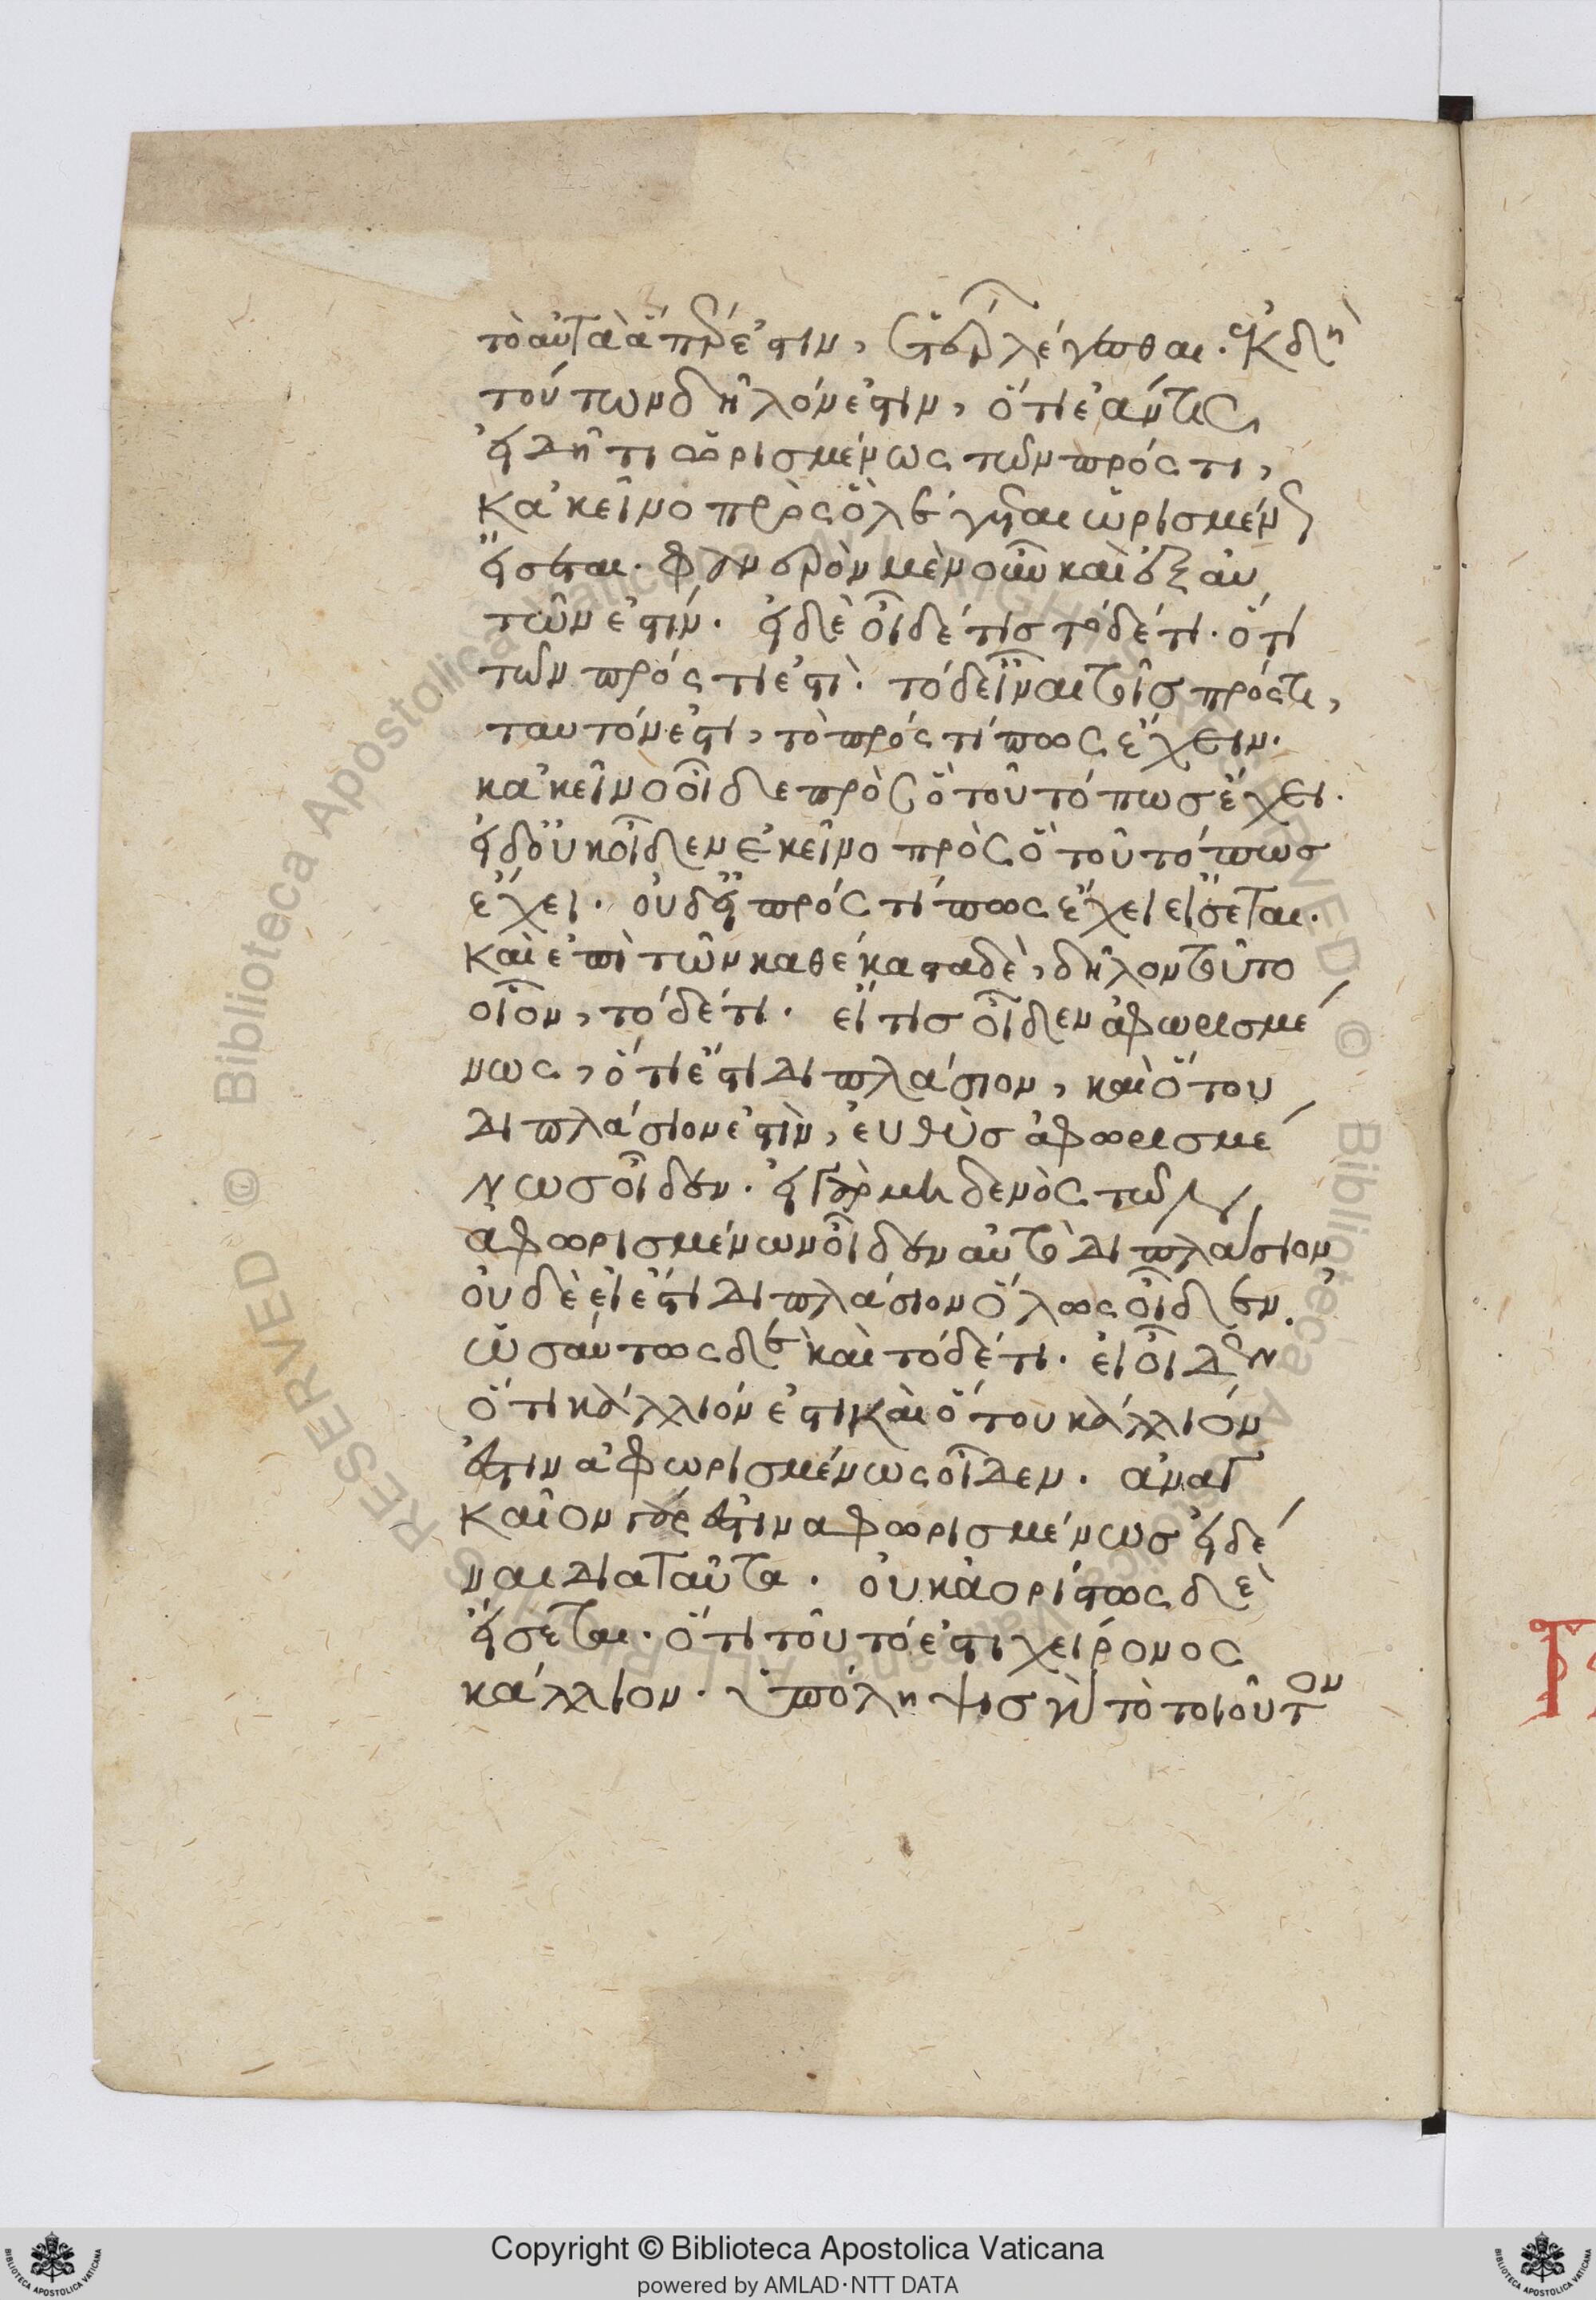 τὸ αὐτὰ ἅπερ ἐστὶν, ἑτέρων λέγεσθαι. ἐκ δὴ
τούτων δῆλόν ἐστιν, ὅτι ἐάν τις
εἰδῇ τι ὡρισμένως τῶν πρός τι,
κἀκεῖνο πρὸς ὃ λέγεται ὡρισμένως
εἴσεται. φανερὸν μὲν οὖν καὶ ἐξ αὐ
τῶν ἐστίν. εἰ δὲ οἶδέ τις τόδέ τι. ὅτι
τῶν πρός τι ἐστὶ. τὸ δὲ εἶναι τοῖς πρός τι,
ταυτόν ἐστι, τὸ πρός τί πως ἔχειν.
κἀκεῖνο οἶδε πρὸς ὃ τοῦτό πως ἔχει.
εἰ δ' οὐκ οἶδεν ἐκεῖνο πρὸς ὃ τοῦτό πως
ἔχει. οὐδ' εἰ πρός τί πως ἔχει εἴσεται.
καὶ ἐπὶ τῶν καθέκαστα δὲ, δῆλον τοῦτο
οἷον, τόδέ τι. εἴ τις οἶδεν ἀφωρισμέ
νως, ὅτι ἔστι διπλάσιον, καὶ ὅτου
διπλάσιον ἐστὶν, εὐθὺς ἀφωρισμέ
νως οἶδεν. εἰ γὰρ μηδενὸς τῶν
ἀφωρισμένων οἶδεν αὐτὸ διπλάσιον
οὐδὲ εἰ ἔστι διπλάσιον ὅλως οἶδεν.
ὡσαύτως δὲ καὶ τόδέ τι. εἰ οἶδεν
ὅτι κάλλιόν ἐστι καὶ ὅτου κάλλιόν
ἐστιν ἀφωρισμένως οἶδεν. ἀναγ
καῖον γάρ ἐστιν ἀφωρισμένως εἰδέ
ναι διὰ ταῦτα. οὐκ ἀορίστως δὲ
εἴσεται. ὅτι τοῦτό ἐστι χείρονος
κάλλιον. ὑπόληψις γὰρ τὸ τοιοῦτον
Copyright © Biblioteca Apostolica Vaticana
powered by AMLAD·NTT DATA